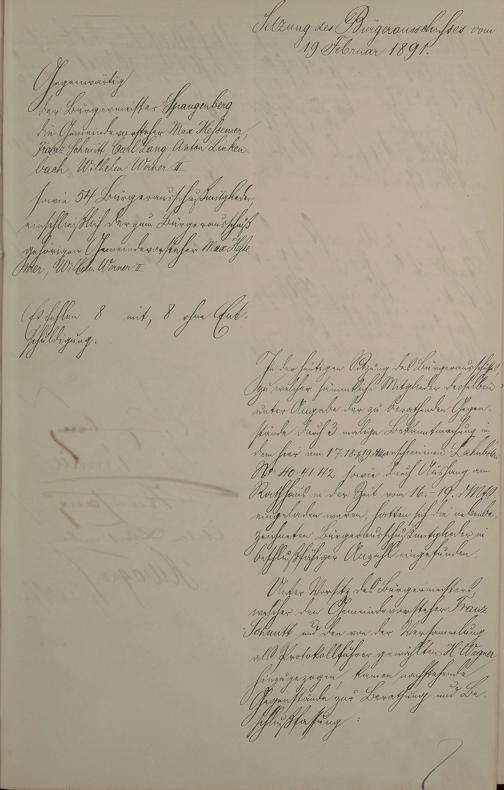 Sitzung des Bürgerausschusses vom
19 Februar 1891.
Gegenwärtig
der Bürgermeister Spangenberg
die Gemeindevorsteher Max Hessemer,
Franz Schmitt Carl Lang Anton Linken
bach, Wilhelm Werner II
sowie 54 Bürgerausschußmitglieder
einschließlich der zum Bürgerausschuß
gehörigen Gemeindevorsteher Max Hesse
mer, Wilhelm Werner II
Es fehlen 8 mit, 8 ohne Ent-
schuldigung.
In der heutigen Sitzung des Bürgerausschusses
zu welcher sämmtliche Mitglieder desselben
unter Angabe der zu berathenden Gegen-
stände durch 3 malige Bekanntmachung in
dem hier am 17. 18. & 19 erschienenen Lahnboten
No 40. 41. 42 sowie durch Aushang am
Rathhaus in der Zeit vom 16.-19. d Mts
eingeladen waren, hatten sich die nebenbe
zeichneten Bürgerausschußmitglieder in
beschlußfähiger Anzahl eingefunden.
Unter Vorsitz des Bürgermeisters,
welcher den Gemeindevorsteher Franz
Schmitt und den von der Versammlung
als Protokollführer gewählten H. Wagner
hinzugezogen, kamen nachstehende
Gegenstände zur Berathung und Be-
schlußfassung: